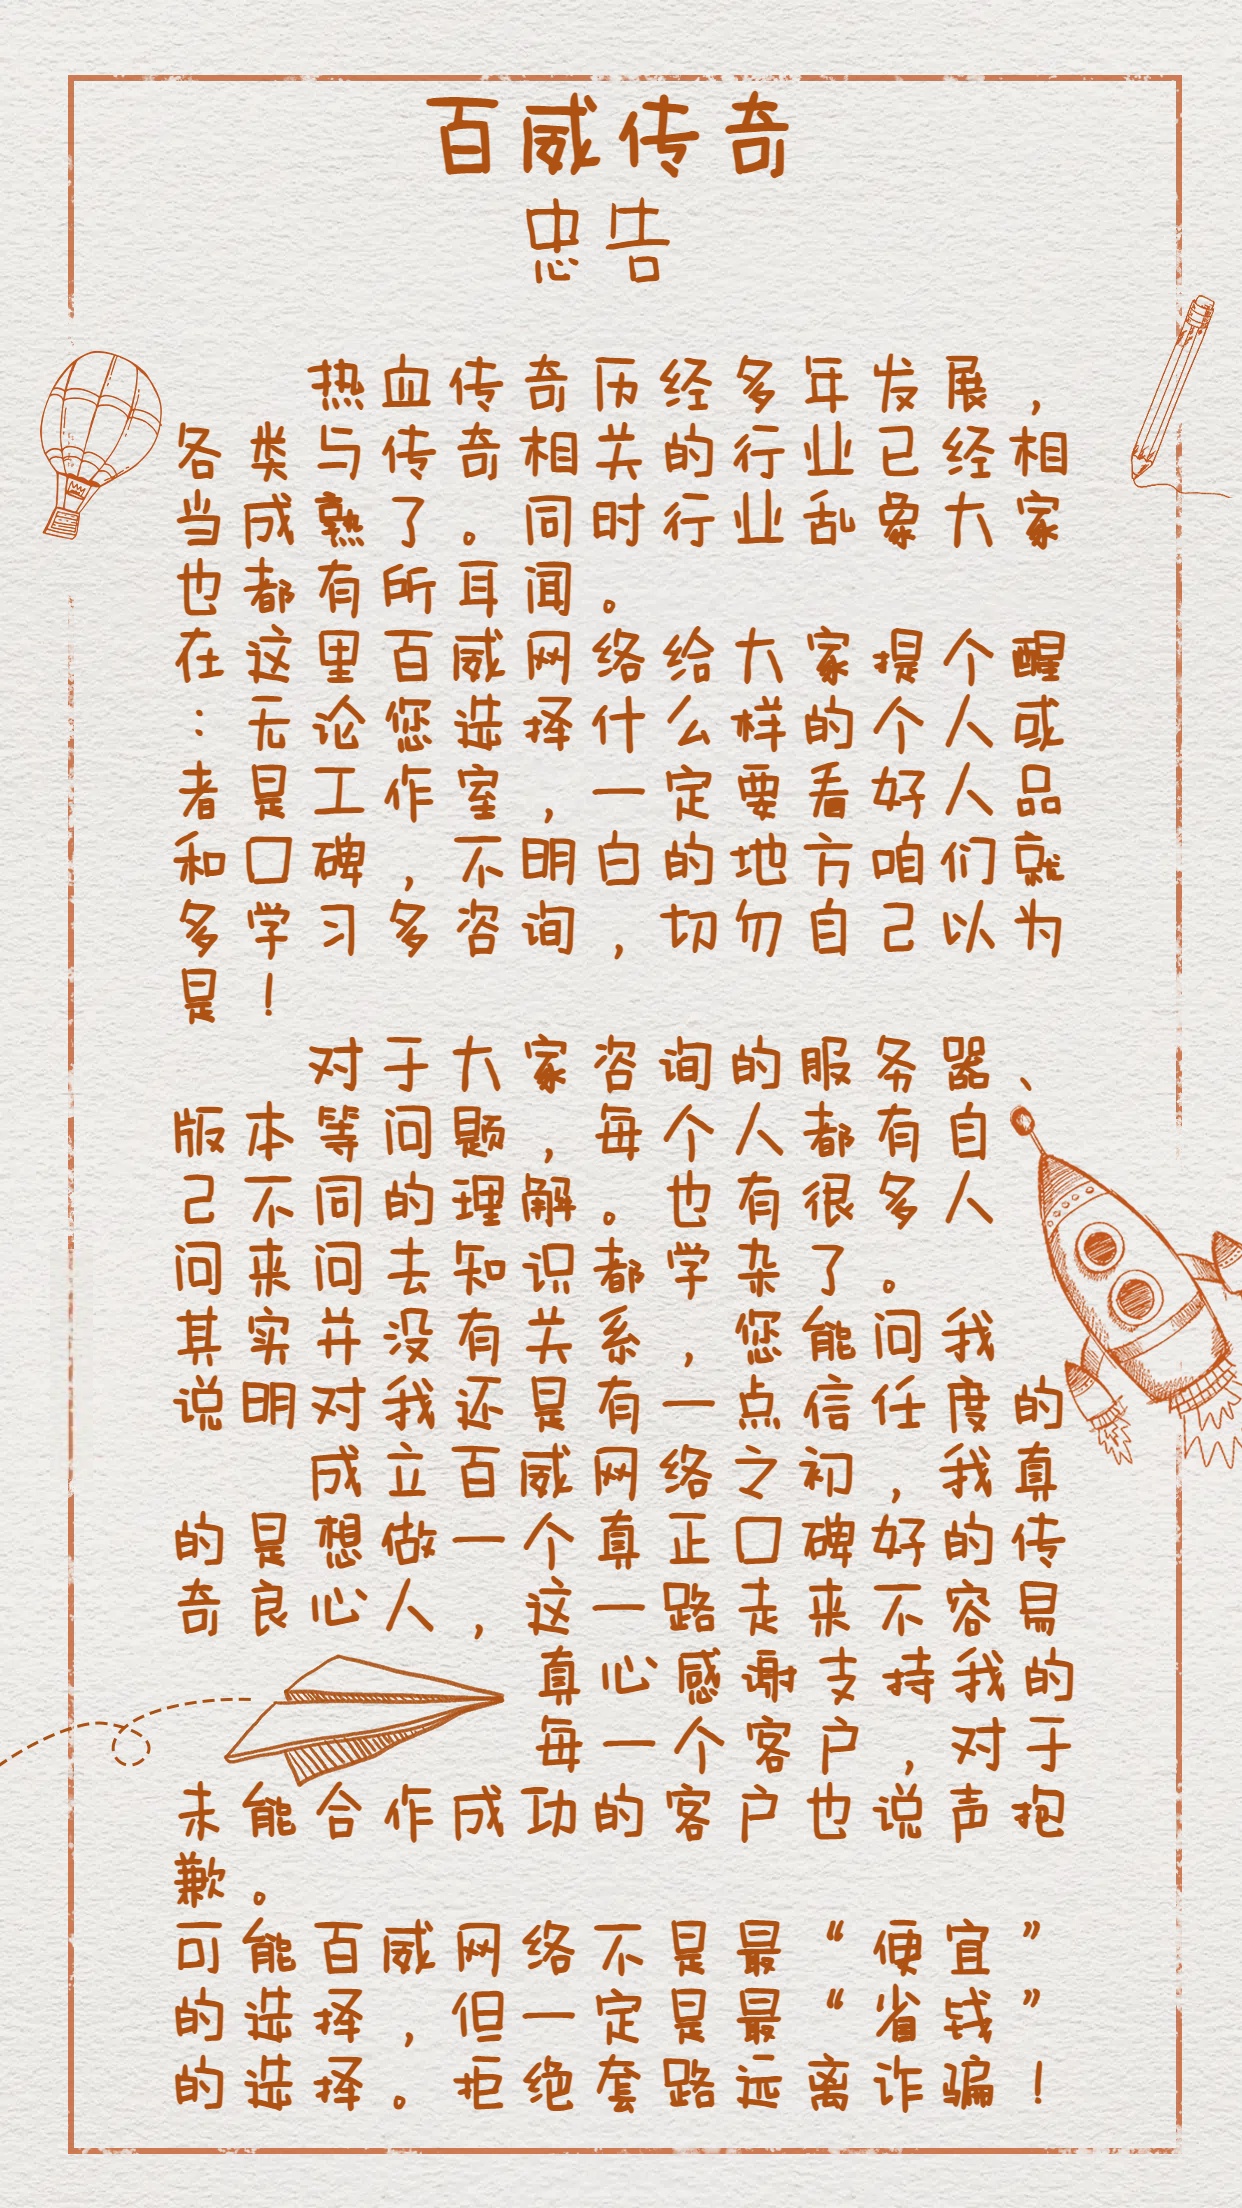 百威传奇
忠告
热血传奇历经多年发展，
各类与传奇相关的行业已经相
当成熟了。同时行业乱象大家
也都有所耳闻。
在这里百威网络给大家提个醒
：无论您选择什么样的个人或
者是工作室，一定要看好人品
和口碑，不明白的地方咱们就
多学习多咨询，切勿自己以为
是！
对于大家咨询的服务器、
版本等问题，每个人都有自
己不同的理解。也有很多人
问来问去知识都学杂了。
其实并没有关系，您能问我
说明对我还是有一点信任度的
成立百威网络之初，我真
的是想做一个真正口碑好的传
奇良心人，这一路走来不容易
真心感谢支持我的
每一个客户，对于
未能合作成功的客户也说声抱
歉。
可能百威网络不是最“便宜”
的选择，但一定是最“省钱”
的选择。拒绝套路远离诈骗！